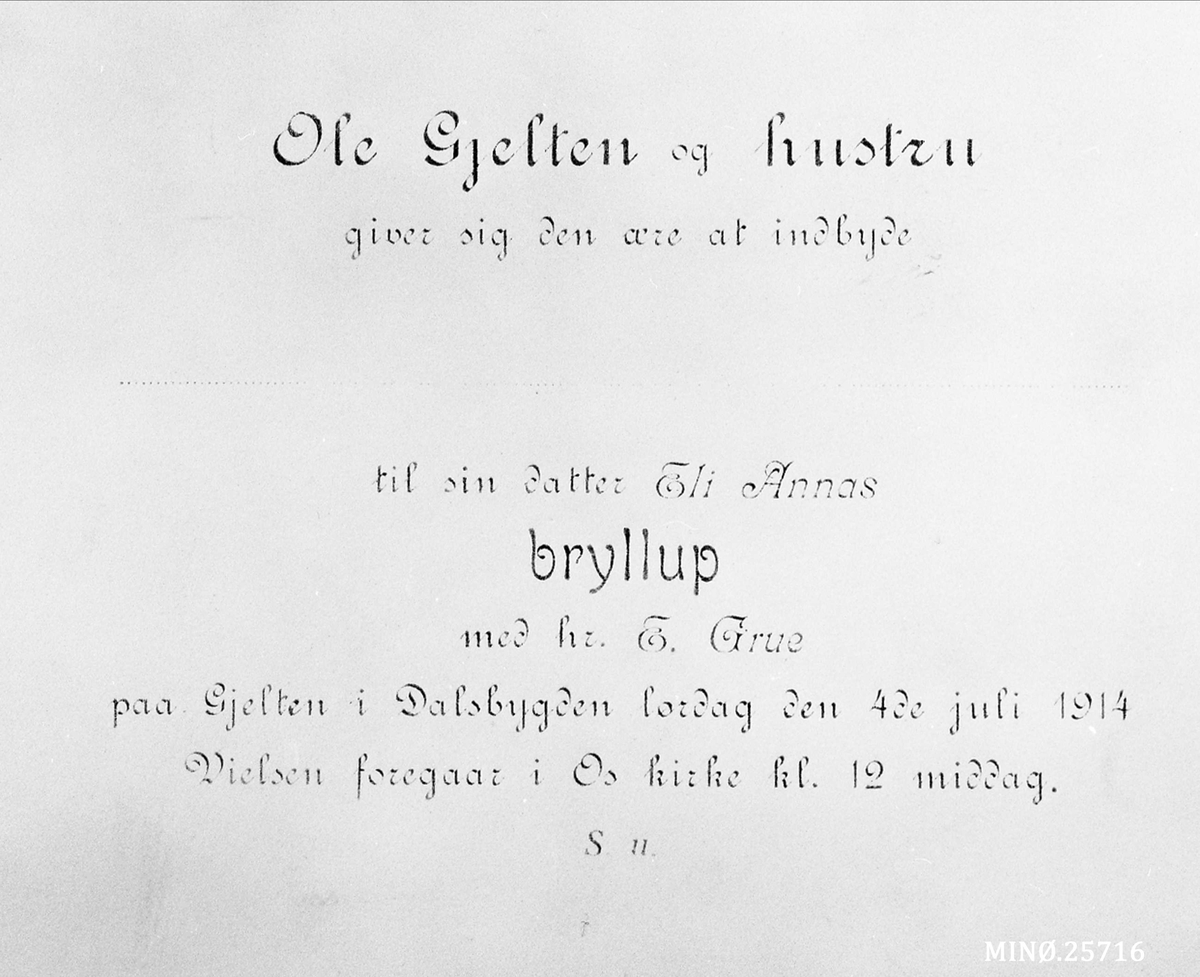 Ole Gjelten og hustru
giver sig den ære at indbyde
til sin datter Eli Annas
bryllup
med hr. E. Grue
paa Gjelten i Dalsbygden lordag den 4de juli 1914
Vielsen foregaar i Os kirke kl. 12 middag.
S. u.
MINØ.25716